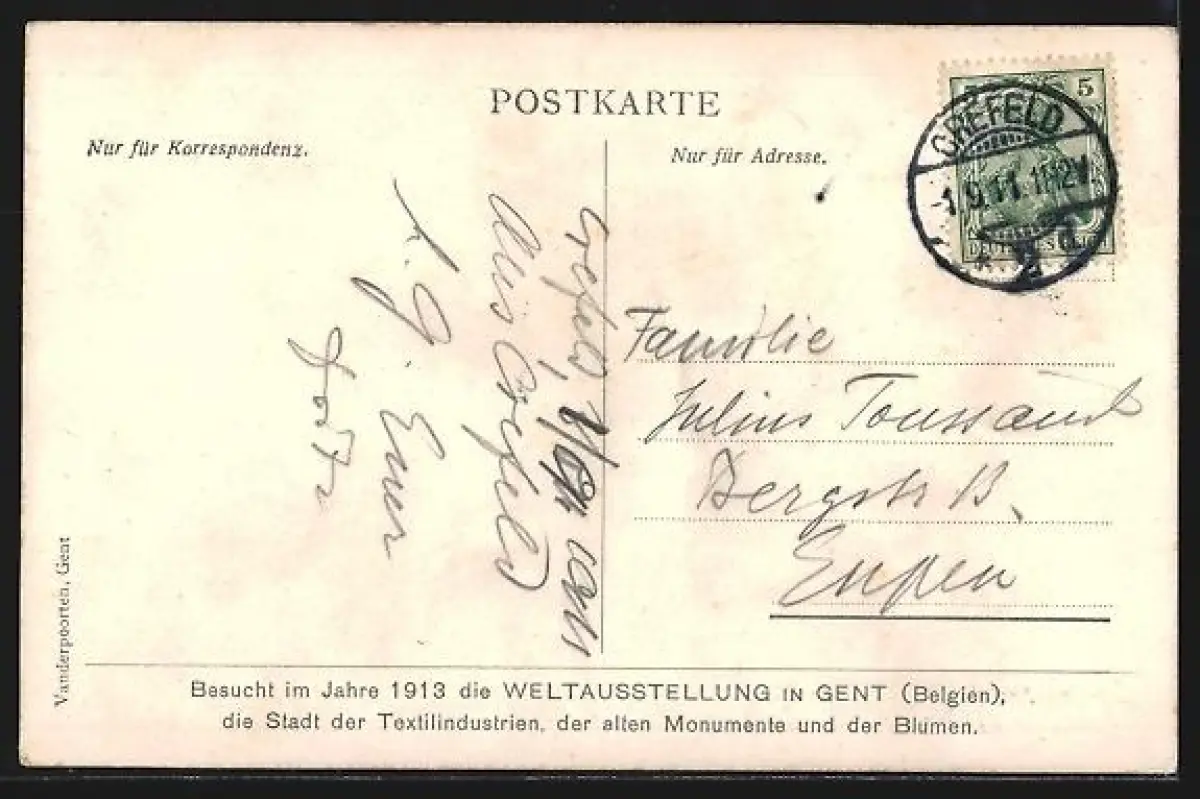 POSTKARTE
Nur für Korrespondenz.
Nur für Adresse.
5
CREFELD
1.9.11.11-12V.
* 2 d
DEUTSCHES REICH
Crefeld,
Aus Crefeld
s. G.
Euer
Familie
Julius Toussaint
Bergstr 13.
Eupen
Vanderpoorten, Gent
Besucht im Jahre 1913 die WELTAUSSTELLUNG IN GENT (Belgien),
die Stadt der Textilindustrien, der alten Monumente und der Blumen.